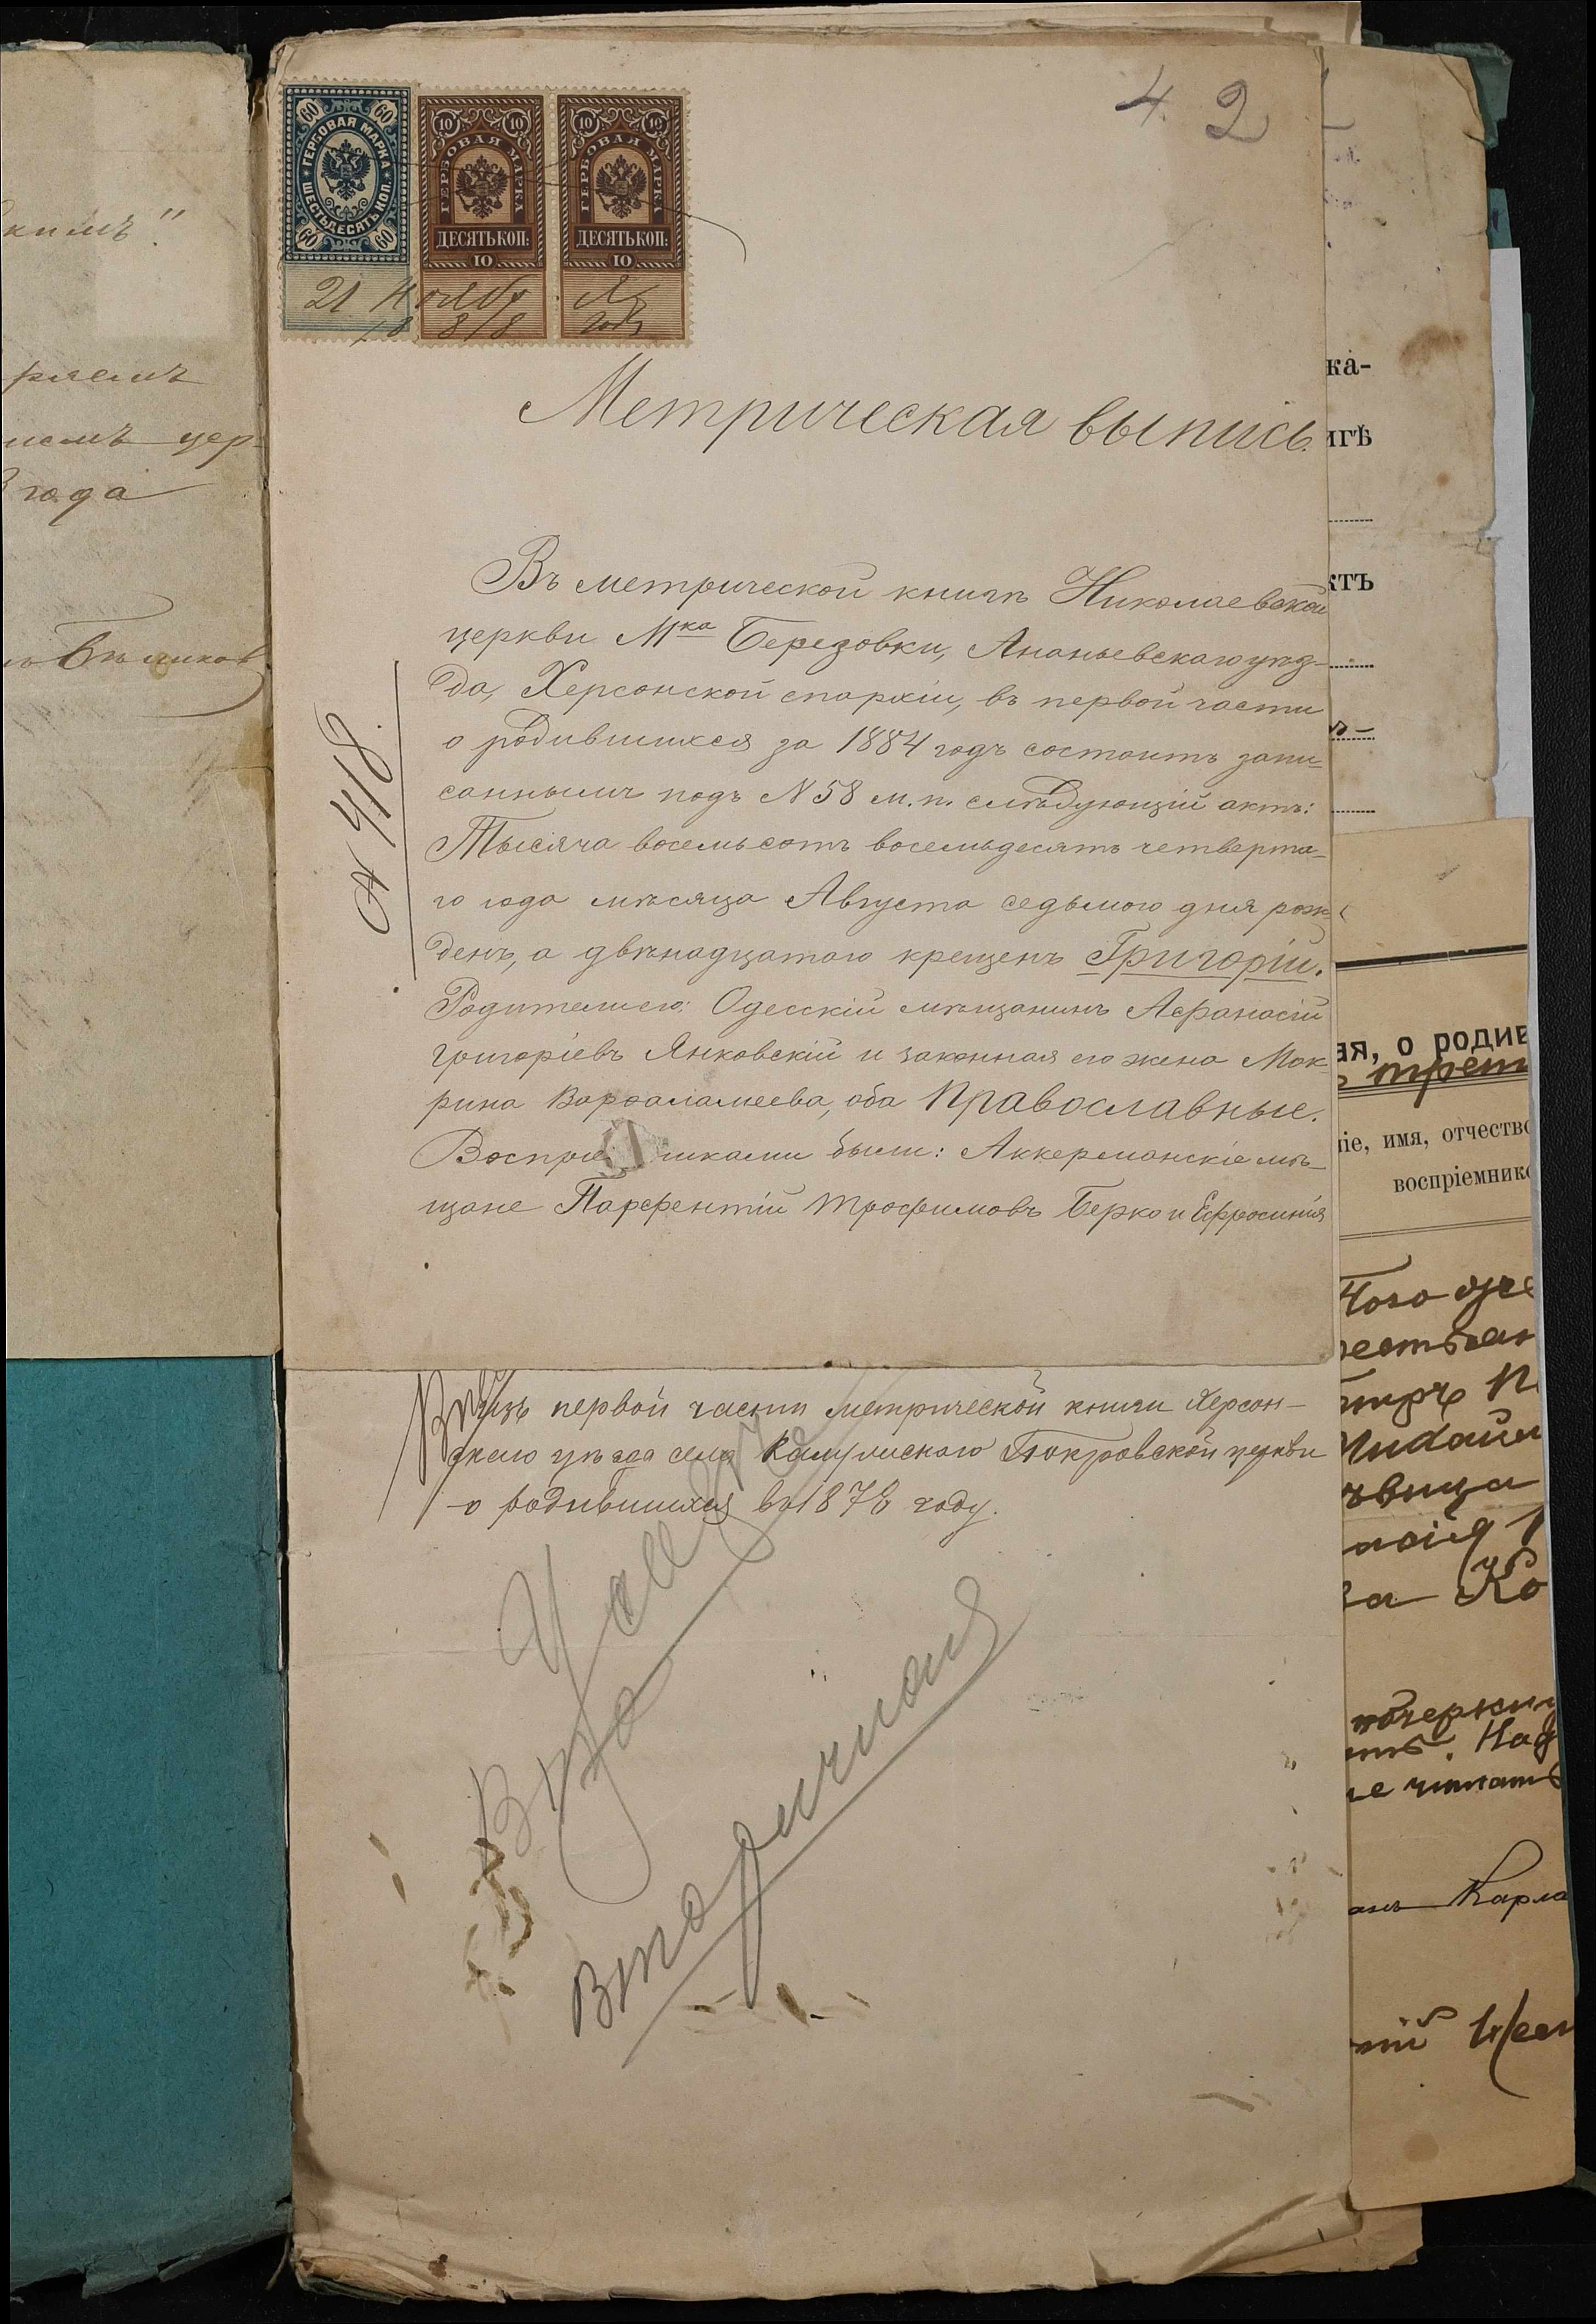 4. 2
60 60
ГЕРБОВАЯ МАРКА
ШЕСТЬДЕСЯТЪ КОП.
60 60
10 10
ГЕРБОВАЯ МАРКА
ДЕСЯТЬ КОП:
10
10 10
ГЕРБОВАЯ МАРКА
ДЕСЯТЬ КОП:
10
21 Ноябр
Метрическая выпись.
Въ метрической книгѣ Николаевской
церкви Мка Березовки, Ананьевскаго уѣз-
да, Херсонской епархіи, въ первой части
о родившихся за 1884 годъ состоитъ запи-
саннымъ подъ N 58 м. п. слѣдующій актъ:
Тысяча восемьсотъ восемьдесятъ четверта-
го года мѣсяца Августа седьмого дня рож-
денъ, а двѣнадцатаго крещенъ Григорій.
Родители его: Одесскій мѣщанинъ Афанасій
Григоріевъ Янковскій и законная его жена Мок
рина Варѳаламеева, оба Православные.
Воспріе никами были: Аккерманскіе мѣ-
щане Парфентій Трофимовъ Берко и Ефросинія
N 418.
изъ первой части метрической книги Херсон-
скаго уѣзда села Покровской церкви
о родившихся въ 1878 году.
Вторичная
кимъ"
цер-
года
ка-
игѣ
ктъ
ая, о родив
трет
іе, имя, отчество
воспріемнико
Того же
Ко
Над
не читать
Карла